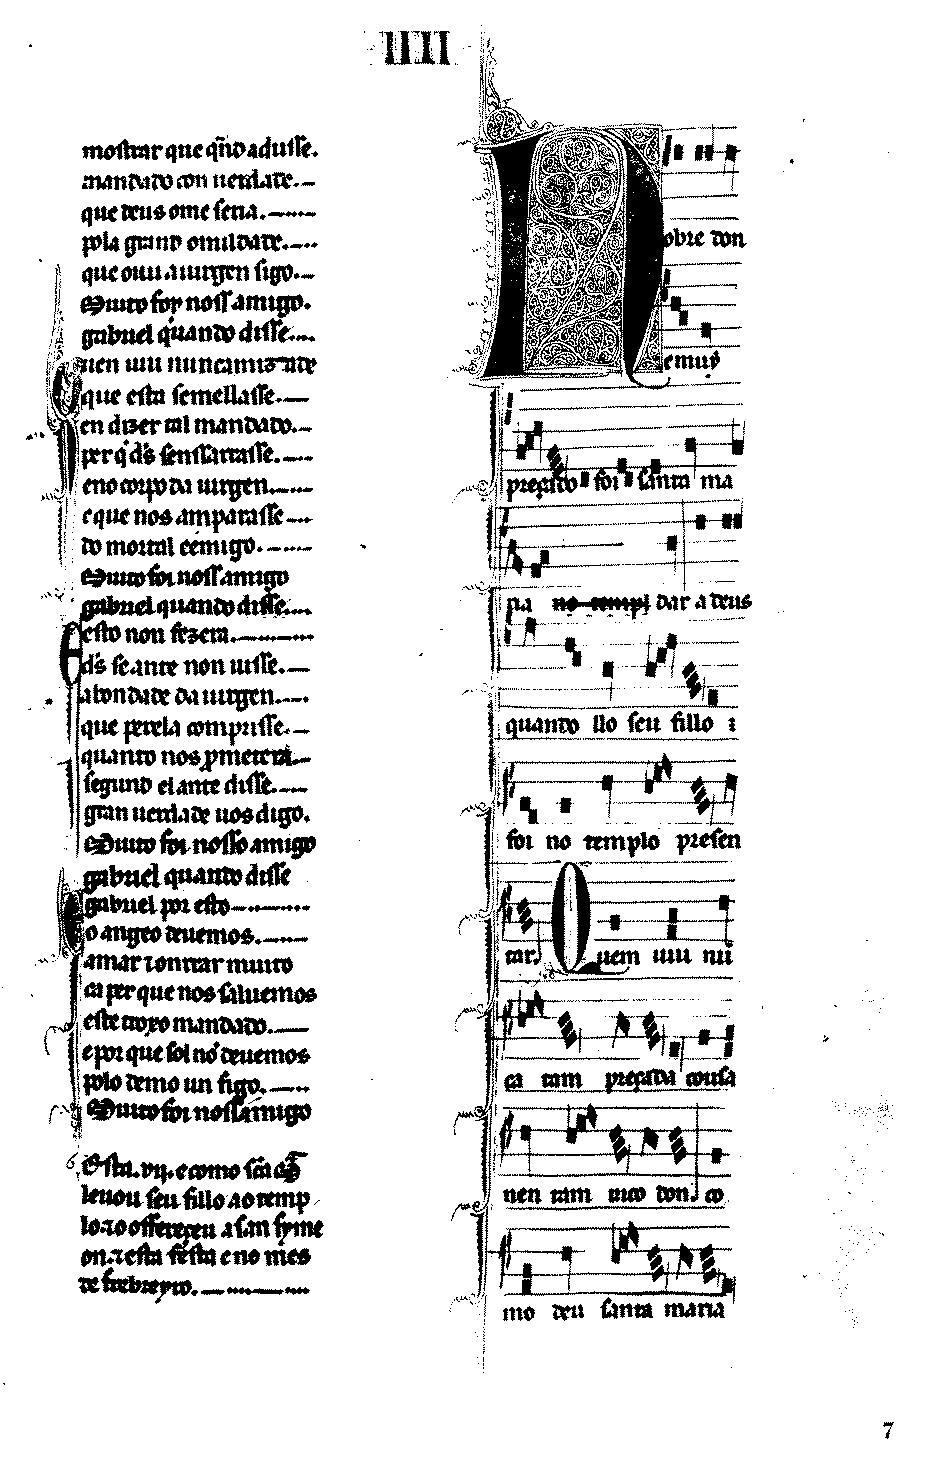 IIII
mostrar que q̃ndo aduisse.
mandado con uerdade.
que deus ome seria.
pola grand omildade.
que ouu a uirgen sigo.
Muito foy noss amigo.
gabuel quando disse.
uen uiu nunca
que esta semellasse.
en dizer tal mandado.
per q̇ d's senssarrasse.
eno corpo da uirgen.
e que nos amparasse
do mortal eemigo.
Muito foi noss amigo
gabuel quando disse.
Esto non fezera.
d's se ante non uisse.
a bondade da uirgen.
que per ela comprisse.
quanto nos pmetera.
segund el ante disse.
gran uerdade uos digo.
Muito foi nosso amigo
gabuel quando disse
gabuel por esto
o angeo deuemos.
amar ⁊ onrrar muito
ca per que nos saluemos
este troxo mandado.
e por que sol nō deuemos
polo demo un figo.
Muito foi noss amigo
Esta .vij. e como sc̃a
leuou seu fillo ao temp
lo. ⁊ o offereçeu a san syme
on. ⁊ esta festa e no mes
de febreyro.
Nobre don
e muy
preçado foi santa ma
ria no templ dar a deus
quando llo seu fillo i
foi no templo presen
tar. Quem uiu nū
ca tam preçada cousa
nen tam rico don. co
mo deu santa maria
7